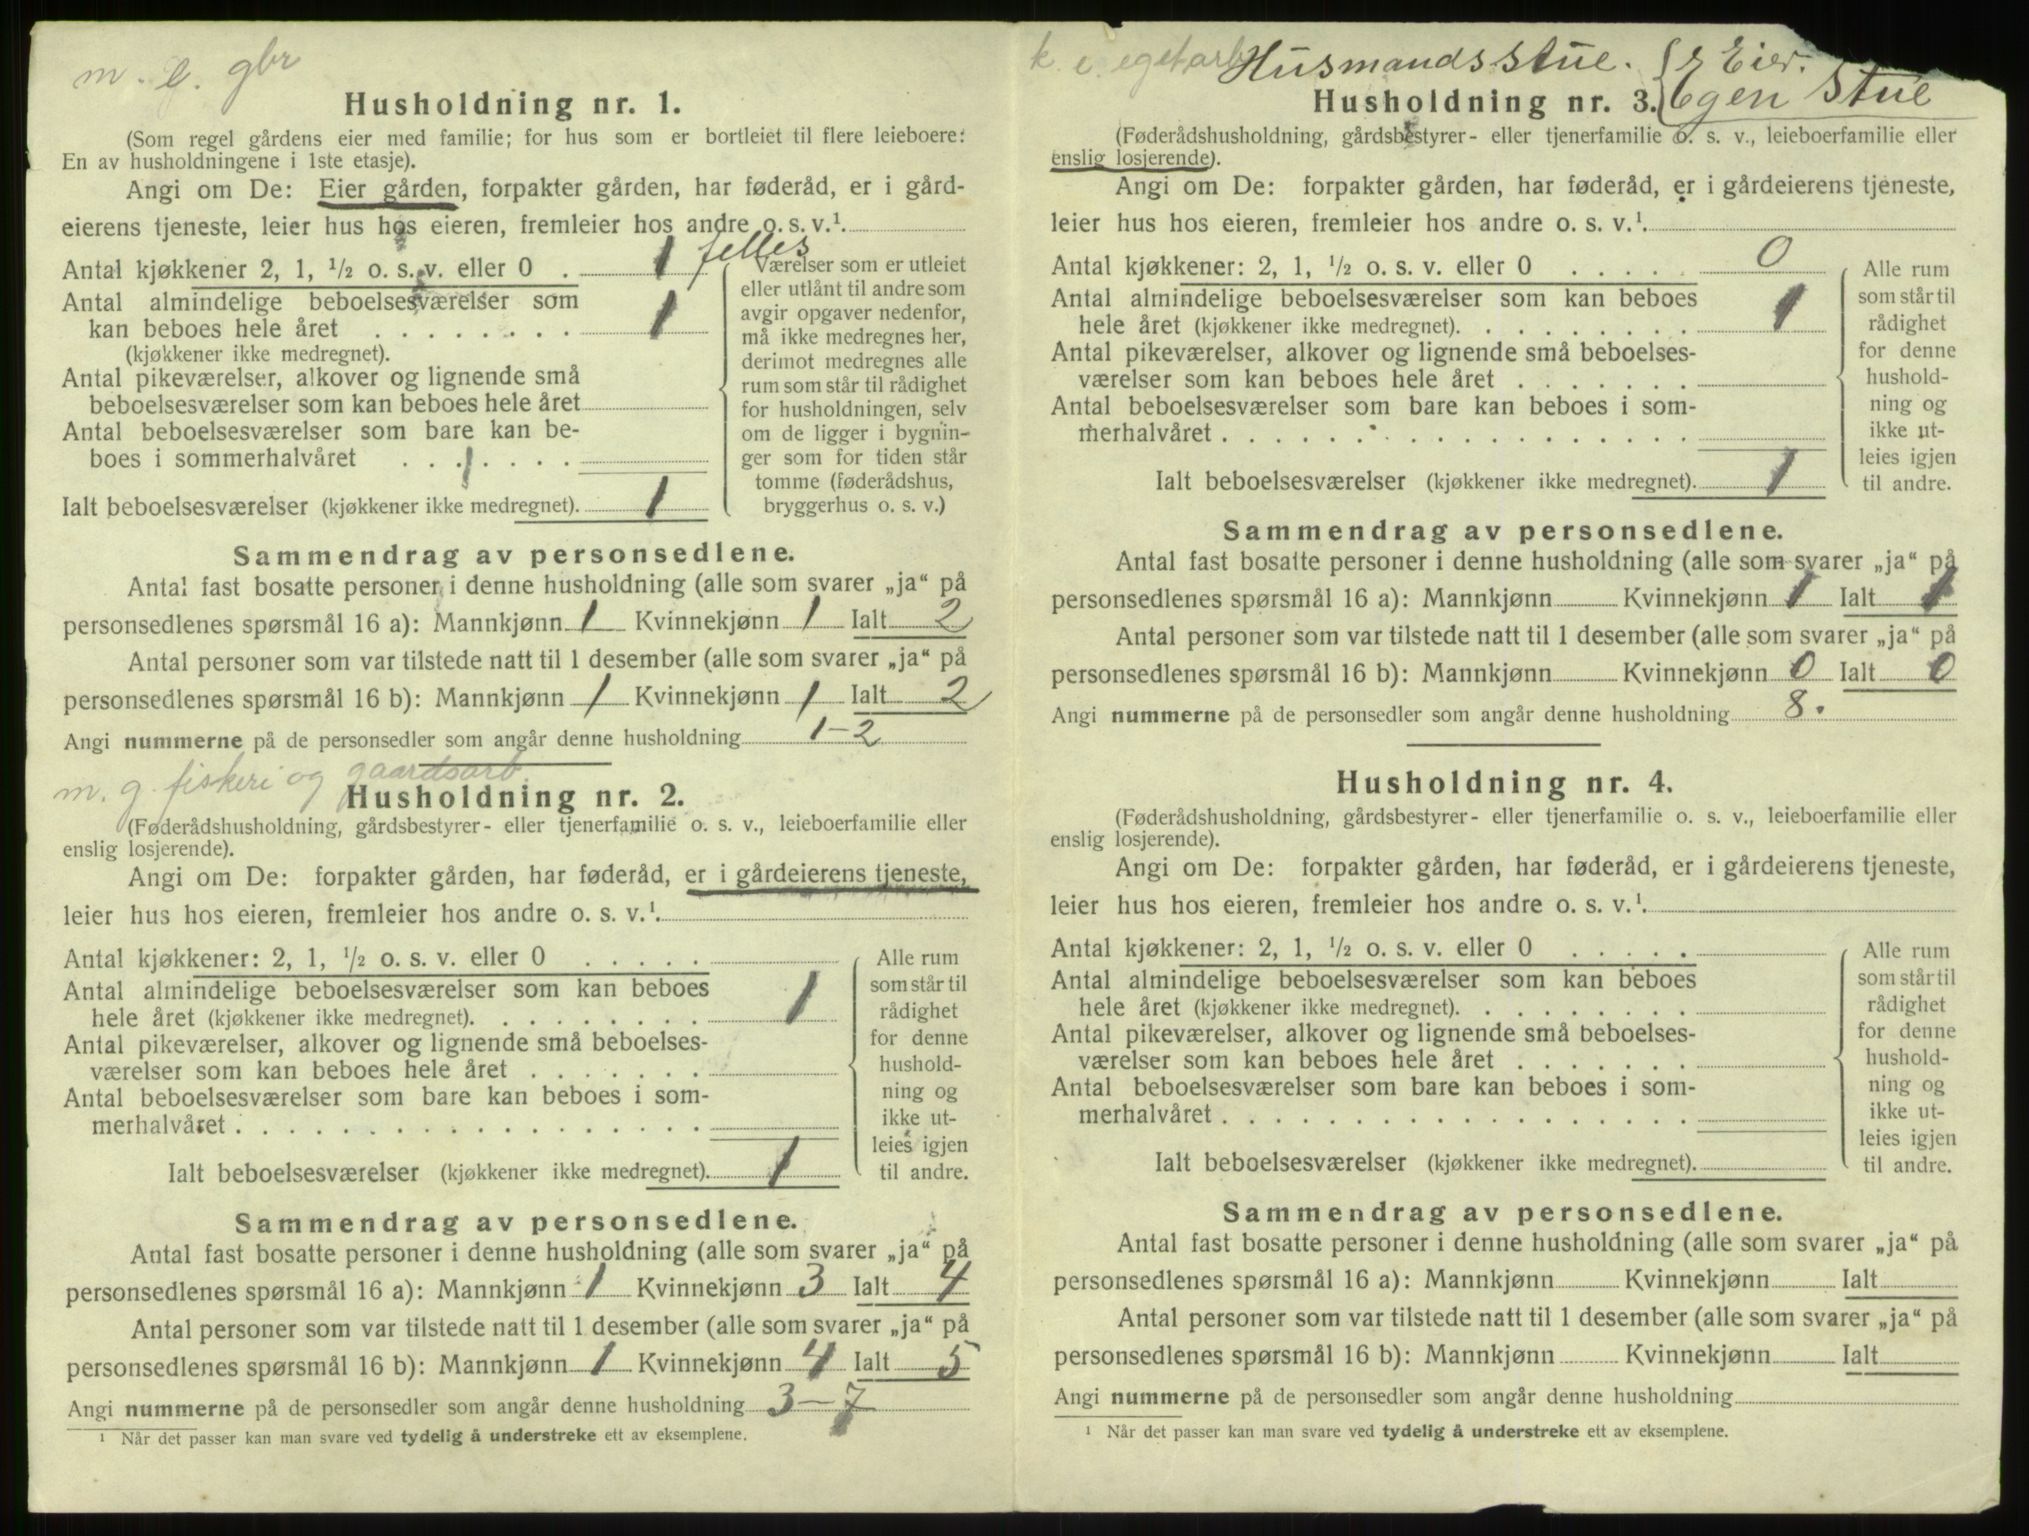 m. e. gbr
Husholdning nr. 1.
(Som regel gårdens eier med familie; for hus som er bortleiet til flere leieboere:
En av husholdningene i 1ste etasje).
Angi om De: Eier gården, forpakter gården, har føderåd, er i gård-
eierens tjeneste, leier hus hos eieren, fremleier hos andre o. s. v.¹.
Antal kjøkkener 2, 1, ½ o. s. v. eller 0 . 1 felles
Antal almindelige beboelsesværelser som
kan beboes hele året . . . . . . . . 1
(kjøkkener ikke medregnet).
Antal pikeværelser, alkover og lignende små
beboelsesværelser som kan beboes hele året
Antal beboelsesværelser som bare kan be-
boes i sommerhalvåret . . . . . . .
Ialt beboelsesværelser (kjøkkener ikke medregnet). 1
Værelser som er utleiet
eller utlånt til andre som
avgir opgaver nedenfor,
må ikke medregnes her,
derimot medregnes alle
rum som står til rådighet
for husholdningen, selv
om de ligger i bygnin-
ger som for tiden står
tomme (føderådshus,
bryggerhus o. s. v.)
Sammendrag av personsedlene.
Antal fast bosatte personer i denne husholdning (alle som svarer „ja“ på
personsedlenes spørsmål 16 a): Mannkjønn 1 Kvinnekjønn 1 Ialt 2
Antal personer som var tilstede natt til 1 desember (alle som svarer „ja“ på
personsedlenes spørsmål 16 b): Mannkjønn 1 Kvinnekjønn 1 Ialt 2
Angi nummerne på de personsedler som angår denne husholdning 1-2
m. g. fiskeri og gaardsarb.
Husholdning nr. 2.
(Føderådshusholdning, gårdsbestyrer- eller tjenerfamilie o. s. v., leieboerfamilie eller
enslig losjerende).
Angi om De: forpakter gården, har føderåd, er i gårdeierens tjeneste,
leier hus hos eieren, fremleier hos andre o. s. v.¹.
Antal kjøkkener: 2, 1, ½ o. s. v. eller 0 . . . . .
Antal almindelige beboelsesværelser som kan beboes
hele året (kjøkkener ikke medregnet). . . . . . . . . 1
Antal pikeværelser, alkover og lignende små beboelses-
værelser som kan beboes hele året . . . . . . .
Antal beboelsesværelser som bare kan beboes i som-
merhalvåret . . . . . . . . . . . . . . . . . .
Ialt beboelsesværelser (kjøkkener ikke medregnet). 1
Alle rum
som står til
rådighet
for denne
hushold-
ning og
ikke ut-
leies igjen
til andre.
Sammendrag av personsedlene.
Antal fast bosatte personer i denne husholdning (alle som svarer „ja“ på
personsedlenes spørsmål 16 a): Mannkjønn 1 Kvinnekjønn 3 Ialt 4
Antal personer som var tilstede natt til 1 desember (alle som svarer „ja“ på
personsedlenes spørsmål 16 b): Mannkjønn 1 Kvinnekjønn 4 Ialt 5
Angi nummerne på de personsedler som angår denne husholdning 3-7
¹ Når det passer kan man svare ved tydelig å understreke ett av eksemplene.
k. e. eget arb Husmandsstue. Eier.
Egen Stue
Husholdning nr. 3.
(Føderådshusholdning, gårdsbestyrer- eller tjenerfamilie o. s. v., leieboerfamilie eller
enslig losjerende).
Angi om De: forpakter gården, har føderåd, er i gårdeierens tjeneste,
leier hus hos eieren, fremleier hos andre o. s. v.¹.
Antal kjøkkener: 2, 1, ½ o. s. v. eller 0 . . . . . 0
Antal almindelige beboelsesværelser som kan beboes
hele året (kjøkkener ikke medregnet). . . . . . . . . 1
Antal pikeværelser, alkover og lignende små beboelses-
værelser som kan beboes hele året . . . . . . .
Antal beboelsesværelser som bare kan beboes i som-
merhalvåret . . . . . . . . . . . . . . . . . .
Ialt beboelsesværelser (kjøkkener ikke medregnet). 1
Alle rum
som står til
rådighet
for denne
hushold-
ning og
ikke ut-
leies igjen
til andre.
Sammendrag av personsedlene.
Antal fast bosatte personer i denne husholdning (alle som svarer „ja“ på
personsedlenes spørsmål 16 a): Mannkjønn Kvinnekjønn 1 Ialt 1
Antal personer som var tilstede natt til 1 desember (alle som svarer „ja“ på
personsedlenes spørsmål 16 b): Mannkjønn Kvinnekjønn 0 Ialt 0
Angi nummerne på de personsedler som angår denne husholdning 8.
Husholdning nr. 4.
(Føderådshusholdning, gårdsbestyrer- eller tjenerfamilie o. s. v., leieboerfamilie eller
enslig losjerende).
Angi om De: forpakter gården, har føderåd, er i gårdeierens tjeneste,
leier hus hos eieren, fremleier hos andre o. s. v.¹.
Antal kjøkkener: 2, 1, ½ o. s. v. eller 0 . . . . .
Antal almindelige beboelsesværelser som kan beboes
hele året (kjøkkener ikke medregnet). . . . . . . . .
Antal pikeværelser, alkover og lignende små beboelses-
værelser som kan beboes hele året . . . . . . .
Antal beboelsesværelser som bare kan beboes i som-
merhalvåret . . . . . . . . . . . . . . . . . .
Ialt beboelsesværelser (kjøkkener ikke medregnet).
Alle rum
som står til
rådighet
for denne
hushold-
ning og
ikke ut-
leies igjen
til andre.
Sammendrag av personsedlene.
Antal fast bosatte personer i denne husholdning (alle som svarer „ja“ på
personsedlenes spørsmål 16 a): Mannkjønn Kvinnekjønn Ialt
Antal personer som var tilstede natt til 1 desember (alle som svarer „ja“ på
personsedlenes spørsmål 16 b): Mannkjønn Kvinnekjønn Ialt
Angi nummerne på de personsedler som angår denne husholdning
¹ Når det passer kan man svare ved tydelig å understreke ett av eksemplene.